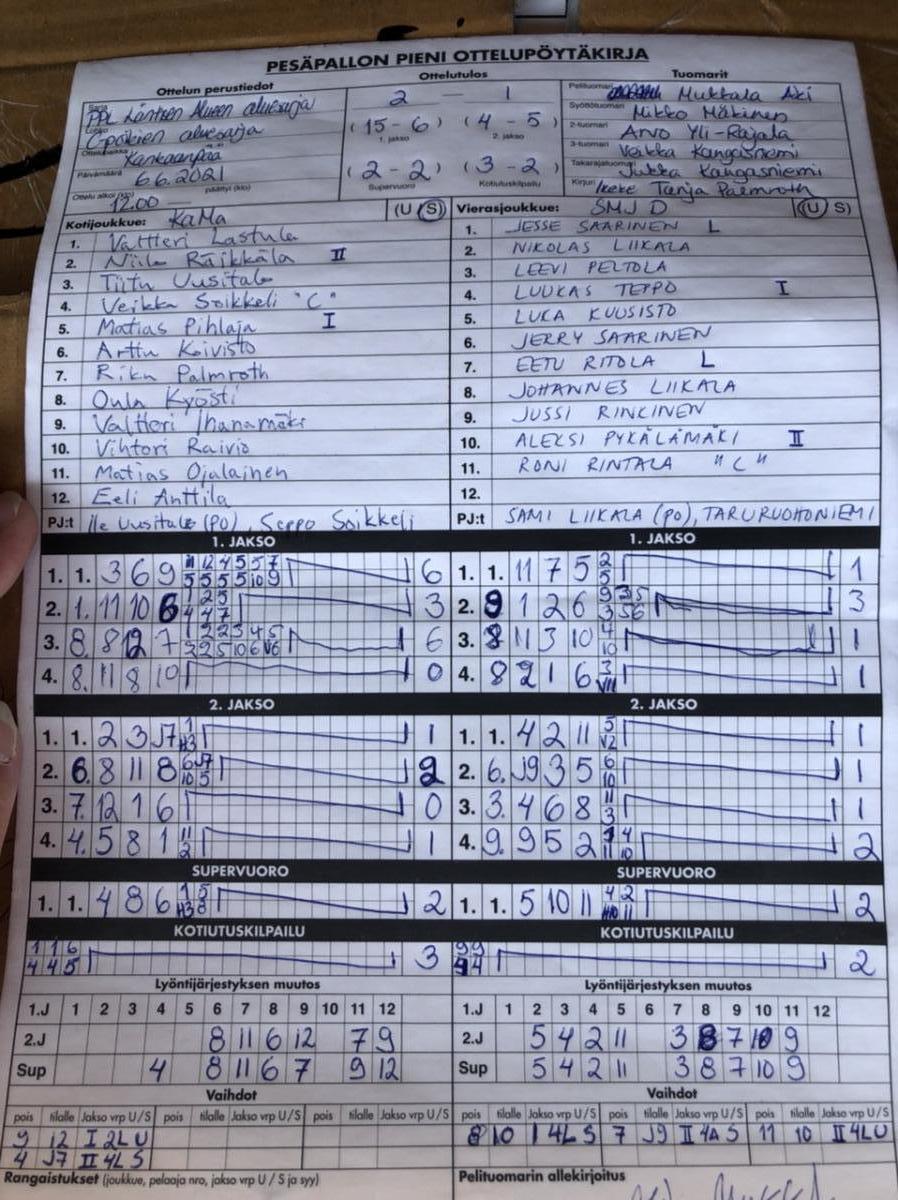 PESÄPALLON PIENI OTTELUPÖYTÄKIRJA
Ottelun perustiedot
Ottelutulos
Tuomarit
Sarja PPL Läntisen Alueen aluesarja
Lohko C-poikien aluesarja
Ottelupaikka Kankaanpää
Päivämäärä 6.6.2021
Ottelu alkoi (klo) 12.00 päättyi (klo)
2 — 1
(15 - 6) (4 - 5)
1. jakso 2. jakso
(2 - 2) (3 - 2)
Supervuoro Kotiutuskilpailu
Pelituomari Mukkala Aki
Syöttötuomari Mikko Mäkinen
2-tuomari Arvo Yli-Rajala
3-tuomari Veikka Kangasniemi
Takarajatuomari Jukka Kangasniemi
Kirjuri Tanja Palmroth
Kotijoukkue: KaMa (U S)
1. Valtteri Lastula
2. Niilo Räikkälä II
3. Tiitu Uusitalo
4. Veikka Soikkeli "C"
5. Matias Pihlaja I
6. Arttu Koivisto
7. Riku Palmroth
8. Onla Kyösti
9. Valtteri Ihanamäki
10. Vihtori Raivio
11. Matias Ojalainen
12. Eeli Anttila
PJ:t Ile Uusitalo (PO), Seppo Soikkeli
Vierasjoukkue: SMJ D (U S)
1. JESSE SAARINEN L
2. NIKOLAS LIIKALA
3. LEEVI PELTOLA
4. LUUKAS TEPPO I
5. LUKA KUUSISTO
6. JERRY SAARINEN
7. EETU RITOLA L
8. JOHANNES LIIKALA
9. JUSSI RINKINEN
10. ALEKSI PYKÄLÄMÄKI II
11. RONI RINTALA "C"
12.
PJ:t SAMI LIIKALA (PO), TARU RUOHONIEMI
1. JAKSO
1. 1. 3 6 9 6
2. 1. 11 10 6 3
3. 8. 8 12 7 6
4. 8. 11 8 10 0
1. JAKSO
1. 1. 11 7 5 1
2. 9 1 2 6 3
3. 8 11 3 10 1
4. 8 2 1 6 1
2. JAKSO
1. 1. 2 3 J7 1
2. 6. 8 11 8 2
3. 7. 12 1 6 0
4. 4. 5 8 1 1
2. JAKSO
1. 1. 4 2 11 1
2. 6. J9 3 5 1
3. 3. 4 6 8 1
4. 9. 9 5 2 2
SUPERVUORO
1. 1. 4 8 6 2
SUPERVUORO
1. 1. 5 10 11 2
KOTIUTUSKILPAILU
1 1 6 3
4 4 5
KOTIUTUSKILPAILU
9 9 2
4 4
Lyöntijärjestyksen muutos
1.J 1 2 3 4 5 6 7 8 9 10 11 12
2.J 8 11 6 12 7 9
Sup 4 8 11 6 7 9 12
Lyöntijärjestyksen muutos
1.J 1 2 3 4 5 6 7 8 9 10 11 12
2.J 5 4 2 11 3 8 7 10 9
Sup 5 4 2 11 3 8 7 10 9
Vaihdot
pois tilalle Jakso vrp U/S pois tilalle Jakso vrp U/S pois tilalle Jakso vrp U/S
9 12 I 2L U
4 J7 II 4L S
Vaihdot
pois tilalle Jakso vrp U/S pois tilalle Jakso vrp U/S pois tilalle Jakso vrp U/S
8 10 I 4L S 7 J9 II 4A S 11 10 II 4L U
Rangaistukset (joukkue, pelaaja nro, jakso vrp U / S ja syy)
Pelituomarin allekirjoitus